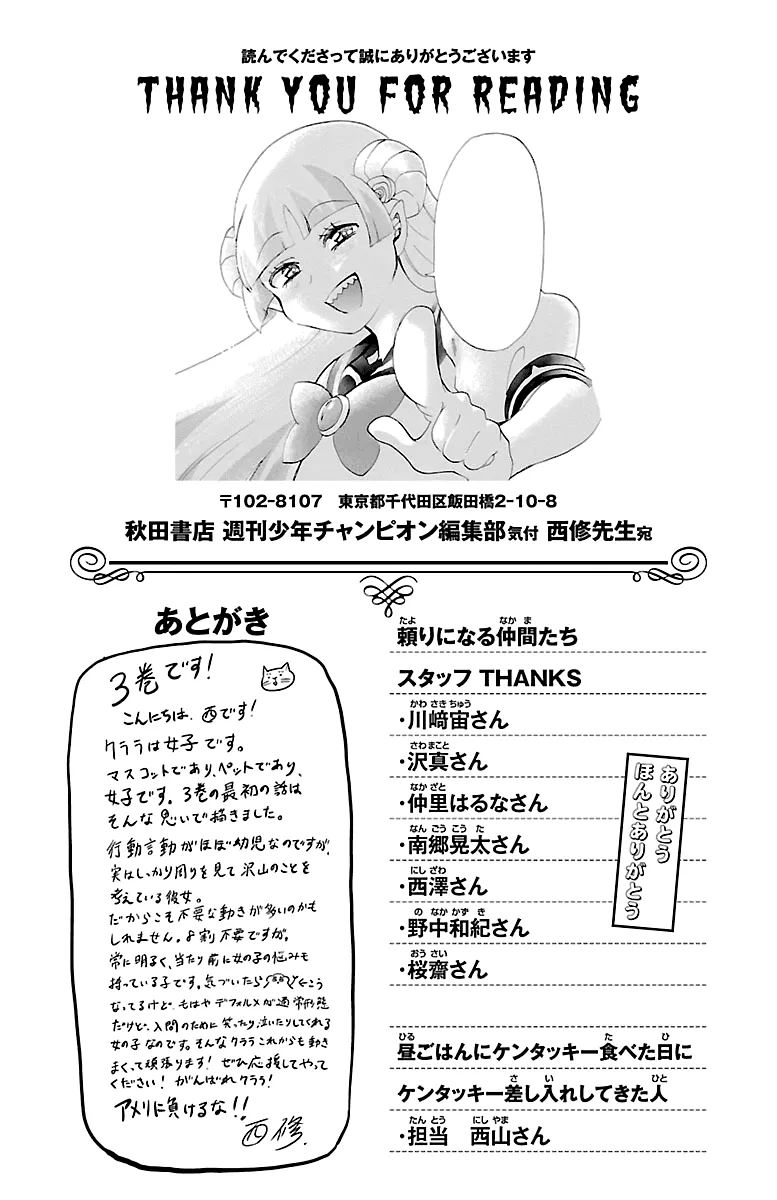 読んでくださって誠にありがとうございます
THANK YOU FOR READING
〒102-8107 東京都千代田区飯田橋2-10-8
秋田書店 週刊少年チャンピオン編集部気付 西修先生宛
あとがき
3巻です!
こんにちは、西です!
クララは女子です。
マスコットであり、ペットであり、
女子です。3巻の最初の話は
そんな思いで描きました。
行動言動がほぼ幼児なのですが、
実はしっかり周りを見て沢山のことを
考えている彼女。
だからこそ不要な動きが多いのかも
しれません。8割不要ですが。
常に明るく、当たり前に女の子の悩みも
持っている子です。気づいたらこう
なってるけど、もはやデフォルメが通常形態
だけど、入間のために笑ったり泣いたりしてくれる
女の子なのです。そんなクララこれからも動き
まくって頑張ります!ぜひ応援してやって
ください!がんばれクララ!
アメリに負けるな!!
西修.
頼りになる仲間たち
スタッフ THANKS
・川﨑宙さん
・沢真さん
・仲里はるなさん
・南郷晃太さん
・西澤さん
・野中和紀さん
・桜齋さん
ありがとう
ほんとありがとう
昼ごはんにケンタッキー食べた日に
ケンタッキー差し入れしてきた人
・担当 西山さん